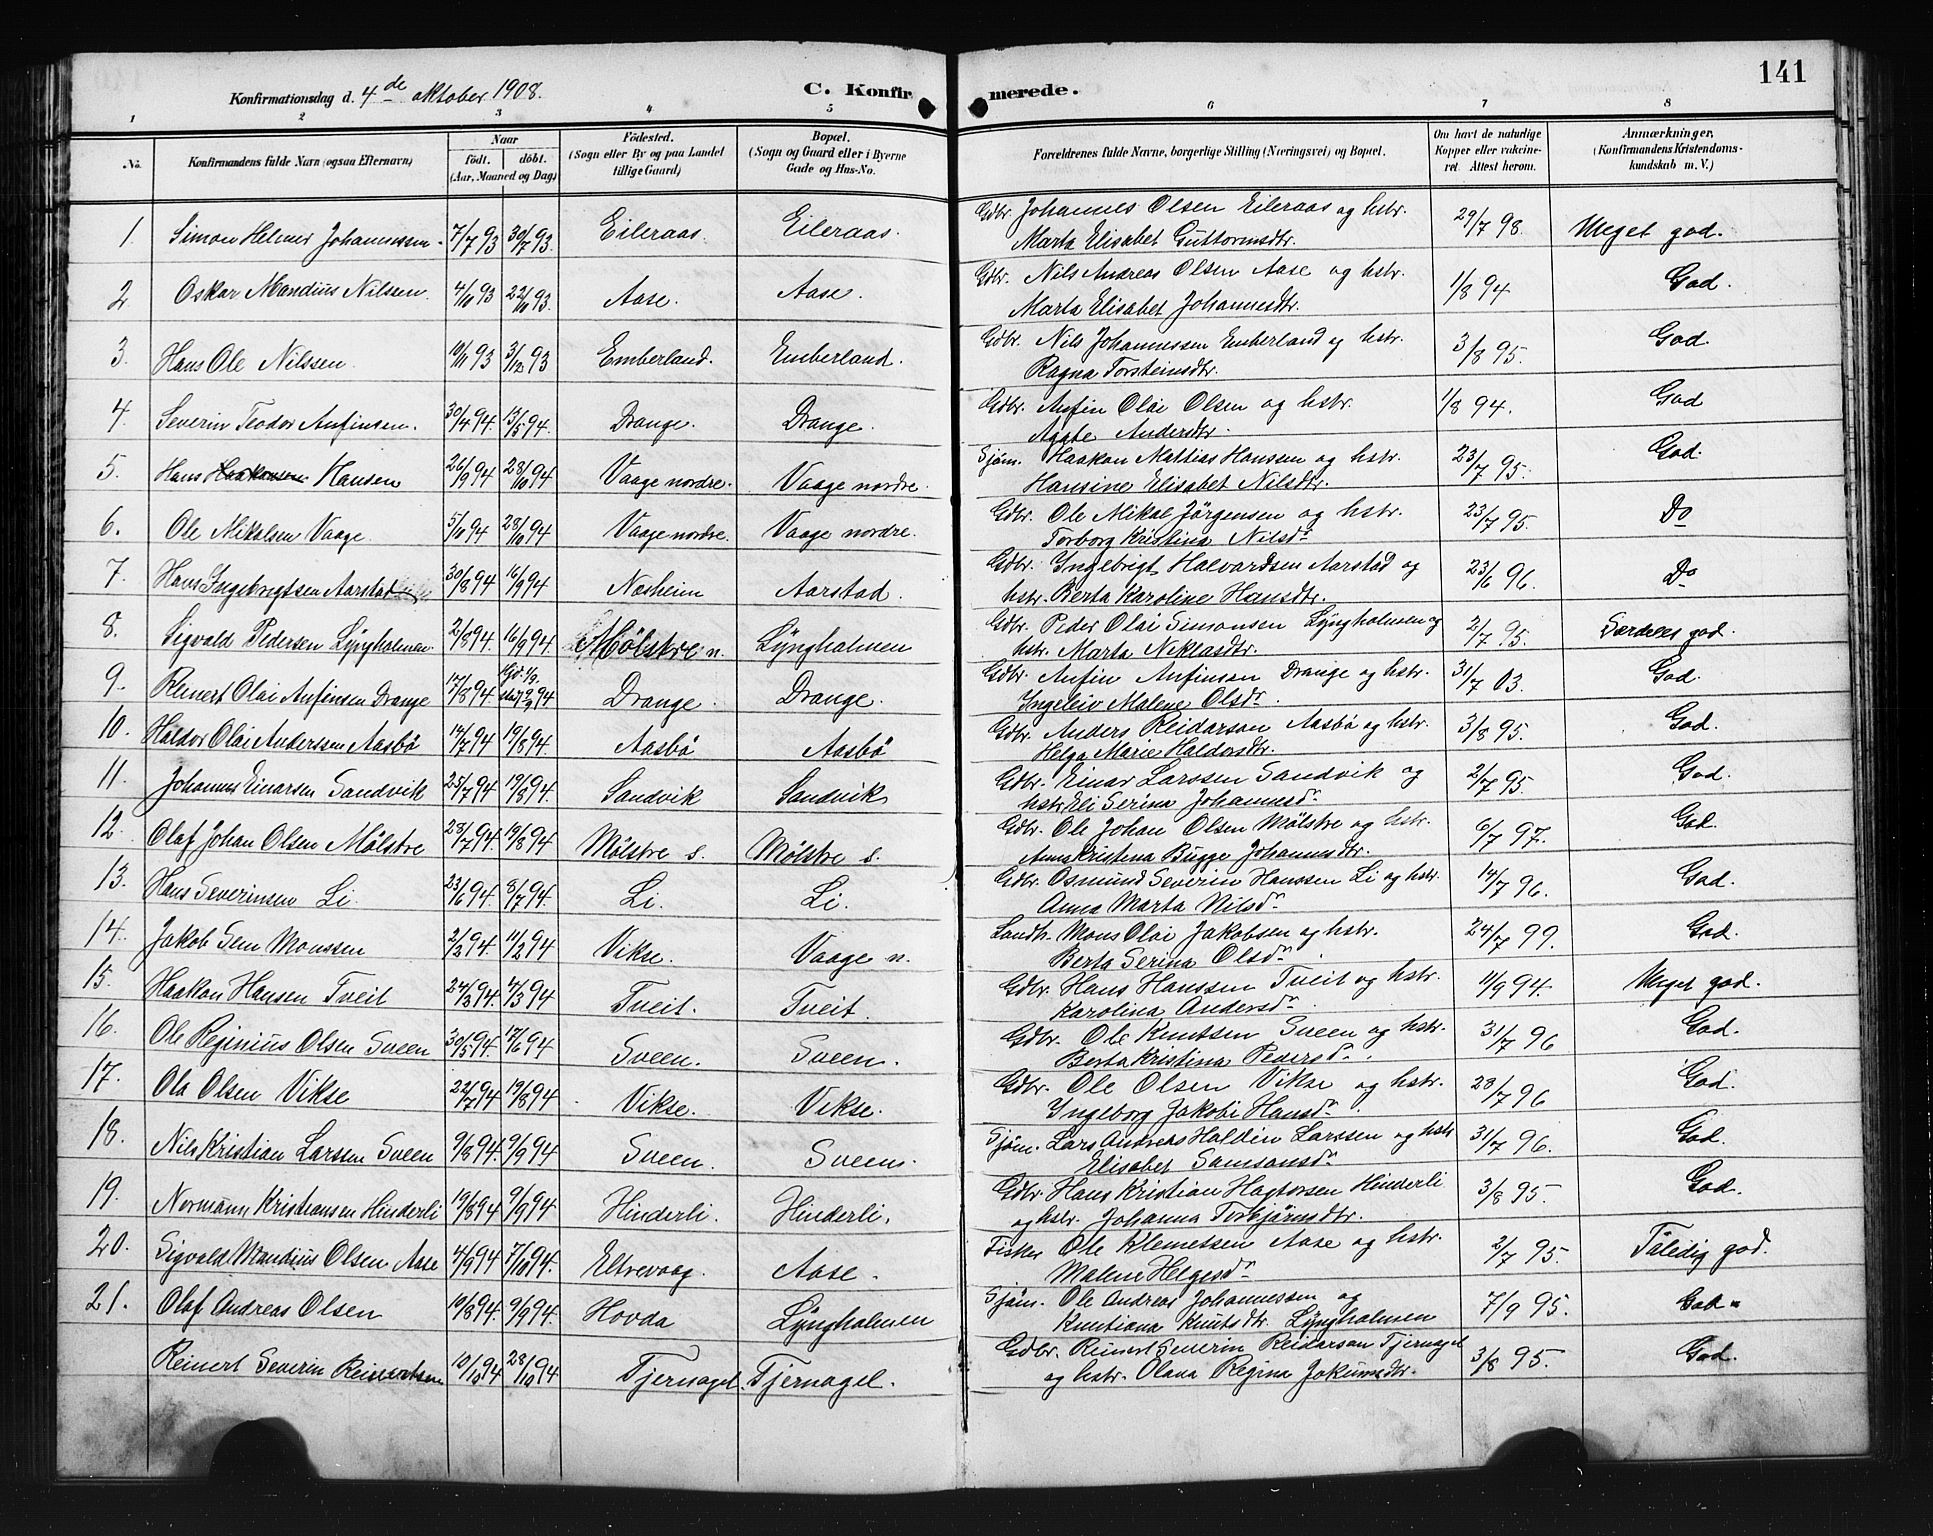 141
Konfirmationsdag d. 4de oktober 1908. C. Konfirmerede.
1 2 3 4 5 6 7 8
No. Konfirmandens fulde Navn (ogsaa Efternavn) Naar födt. döbt. (Aar, Maaned og Dag) Födested. (Sogn eller By og paa Landet tillige Gaard) Bopæl. (Sogn og Gaard eller i Byerne Gade og Hus-No. Forældrenes fulde Navne, borgerlige Stilling (Næringsvei) og Bopæl. Om havt de naturlige Kopper eller vakcineret. Attest herom. Anmærkninger, (Konfirmandens Kristendomskundskab m. V.)
1. Simon Helmer Johannessen 7/7 93 30/7 93. Eileraas. Eileraas. Gdbr. Johannes Olsen Eileraas og hstr. 29/7 98. Meget god.
Marta Elisabet Guttormsdtr.
2 Oskar Mandius Nilsen. 4/10 93 22/10 93. Aase. Aase. Gdbr. Nils Andreas Olsen Aase og hstr. 1/8 94 God.
Marta Elisabet Johannesdtr.
3. Hans Ole Nilssen. 10/11 93 3/12 93 Emberland. Emberland. Gdbr. Nils Johannessen Emberland og hstr. 3/8 95. God.
Ragna Torsteinsdtr.
4. Severin Teodor Anfinsen. 30/4 94. 13/5 94. Drange. Drange. Gdbr. Anfin Olai Olsen og hstr. 1/8 94. God
Agate Andersdtr.
5. Hans Haakonsen Hansen 26/9 94 28/10 94 Vaage nordre. Vaage nordre. Sjøm. Haakon Mattias Hanssen og hstr. 23/7 95. God.
Hansine Elisabet Nilsdtr.
6. Ole Mikalsen Vaage. 5/10 94 28/10 94 Vaage nordre. Vaage nordre. Gdbr. Ole Mikal Jörgensen og hstr. 23/7 95. Do
Torborg Kristina Nilsdr
7. Hans Ingebrigtsen Aarstad 30/8 94 16/9 94 Næsheim Aarstad. Gdbr. Ingebrigt Halvardsen Aarstad og 23/6 96. Do
hstr. Berta Karoline Hansdtr.
8. Sigvald Pedersen Lÿngholmen 2/8 94. 16/9 94. Mölstre n. Lÿngholmen Gdbr. Peder Olai Simonsen Lÿngholmen og 2/7 95. Særdeles god.
hstr. Marta Niklasdtr.
9. Reinert Olai Anfinsen Drange 17/8 94 94 Drange. Drange. Gdbr. Anfin Anfinsen Drange og hstr. 31/7 03. God.
Ingeleiv Malene Olsdr.
10. Haldor Olai Anderssen Aasbö 14/7 94 19/8 94. Aasbö Aasbö Gdbr. Anders Reidarson Aasbö og hstr. 3/8 95. God.
Helga Marie Haldorsdtr.
11. Johannes Einarsen Sandvik 25/7 94 19/8 94. Sandvik Sandvik Gdbr. Einar Larssen Sandvik og 2/7 95. God.
hstr Eli Serina Johannesdr
12. Olaf Johan Olsen Mölstre 28/7 94. 19/8 94 Mölstre s. Mölstre s. Gdbr. Ole Johan Olsen Mölstre og hstr. 6/7 97. God.
Anna Kristena Bugge Johannesdtr.
13. Hans Severinsen Li. 23/6 94. 8/7 94. Li. Li. Gdbr. Osmund Severin Hanssen Li og hstr. 14/7 96. God.
Anna Marta Nilsdr
14. Jakob Sem Monssen 2/2 94. 11/2 94 Vikse. Vaage n. Landh. Mons Olai Jakobsen og hstr. 24/7 99. God.
Berta Serina Olsdr.
15. Haakon Hansen Tveit 24/2 94. 4/3 94 Tveit. Tveit. Gdbr. Hans Hanssen Tveit og hstr. 11/9 94. Meget god.
Karolina Andersdr
16. Ole Reginius Olsen Sveen 30/5 94. 17/6 94 Sveen. Sveen. Gdbr. Ole Knutsen Sveen og hstr. 31/7 96 God.
Berta Kristina Pedersdr.
17. Ola Olsen Vikse 22/7 94 19/8 94 Vikse. Vikse. Gdbr. Ole Olsen Vikse og hstr. 28/7 96 God.
Ingeborg Jakobi Hansdr.
18. Nils Kristian Larssen Sveen 9/8 94. 9/9 94 Sveen. Sveen. Sjøm. Lars Andreas Haldin Larssen og hstr 31/7 96. God.
Elisabet Samsonsdr
19. Normann Kristiansen Hinderli 19/8 94 9/9 94 Hinderli. Hinderli. Gdbr. Hans Kristian Hagtorsen Hinderli 3/8 95. God.
og hstr. Johanna Torbjörnsdtr.
20. Sigvald Mandius Olsen Aase 4/9 94 7/10 94. Eltrevaag. Aase. Fisker Ole Klemetsen Aase og hstr. 2/7 95. Tåledig god.
Malene Helgesdr
21. Olaf Andreas Olsen 10/8 94. 9/9 94. Hovda Lÿngholmen Sjøm. Ole Andreas Johannessen og 7/9 95. God.
Knutiana Knutsdtr. Lÿngholmen
Reinert Severin Reinertsen 10/10 94 28/10 94 Tjernagel. Tjernagel. Gdbr. Reinert Severin Reidarson Tjernagel 3/8 95. God.
og hstr. Olava Regina Jokumsdtr.